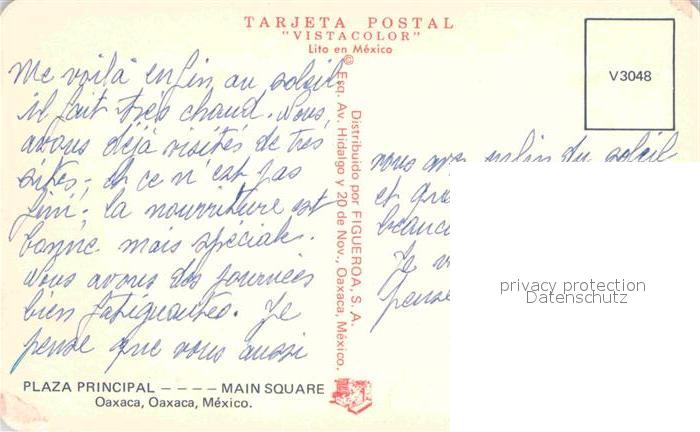 TARJETA POSTAL
"VISTACOLOR"
Lito en México
V3048
Me voilà enfin au soleil
il fait très chaud. Nous
avons déjà visités de tres
sites, et ce n'est pas
fini; la nourriture est
bonne mais spéciale.
Nous avons des journées
bien fatiguantes. Je
pense que vous aussi
© Esq. Av. Hidalgo y 20 de Nov., Oaxaca, México.
Distribuido por FIGUEROA, S. A.
vous avez enfin du soleil
et
Je
pense
privacy protection
Datenschutz
PLAZA PRINCIPAL ---- MAIN SQUARE
Oaxaca, Oaxaca, México.